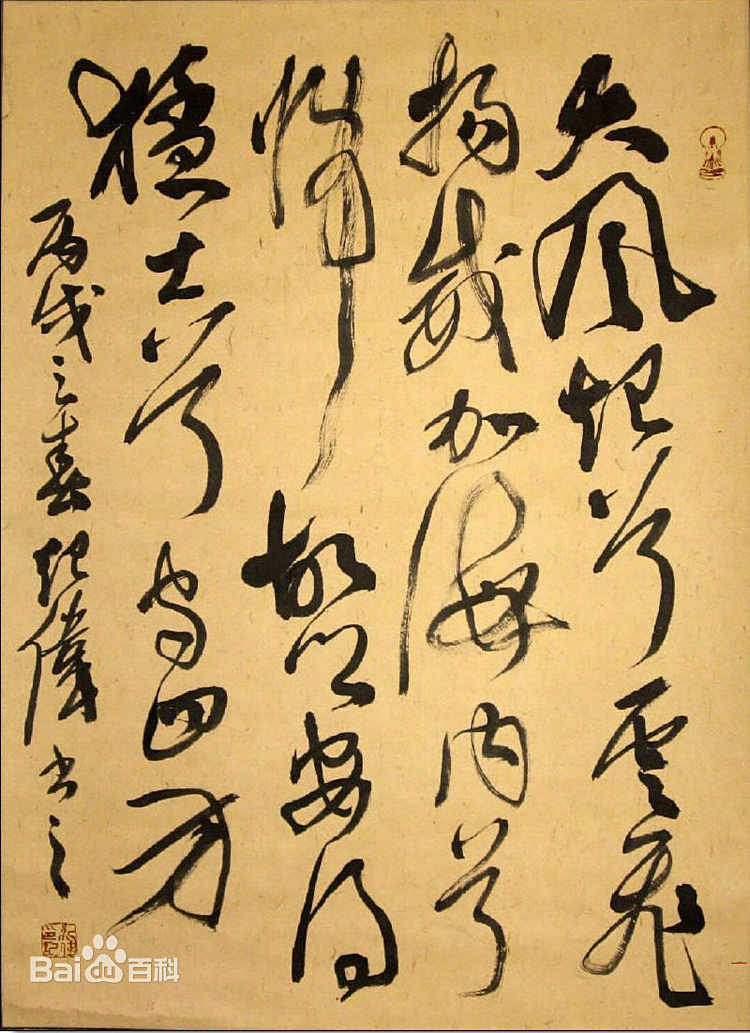 大風起兮雲飛
揚威加海内兮
歸故鄉安得
猛士兮守四方
丙戌之春偉書之
Bai du 百科